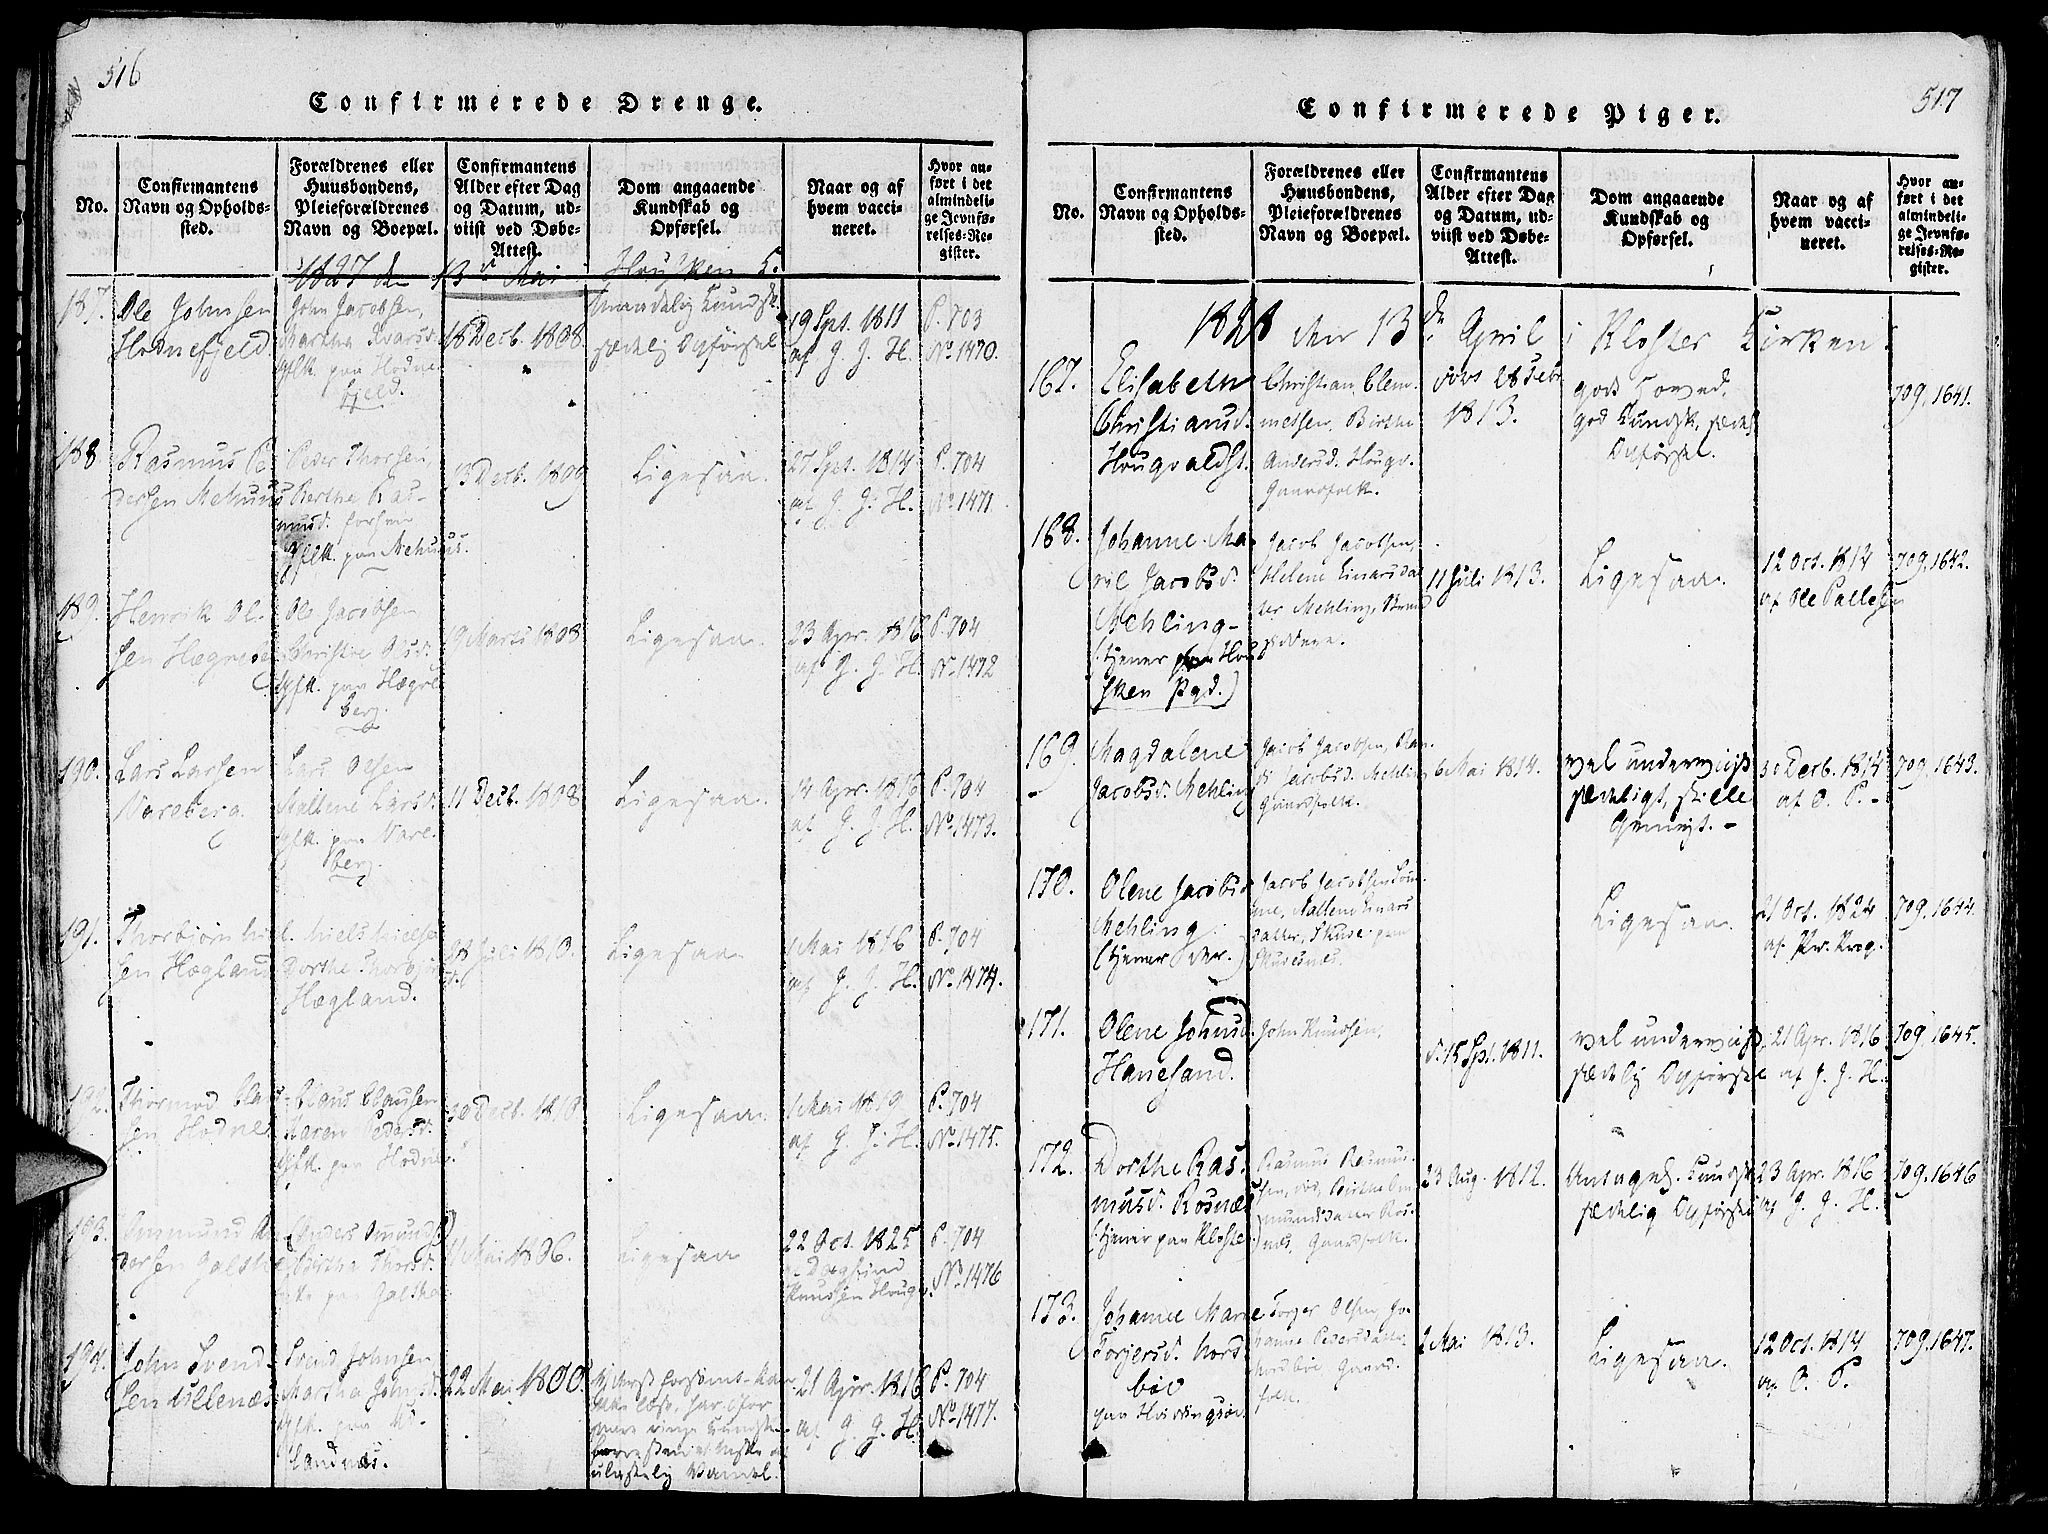 516
Confirmerede Drenge.
No.
Confirmantens
Navn og Opholds-
sted.
Forældrenes eller
Huusbondens,
Pleieforældrenes
Navn og Boepæl.
Confirmantens
Alder efter Dag
og Datum, ud-
viist ved Døbe-
Attest.
Dom angaaende
Kundskab og
Opførsel.
Naar og af
hvem vacci-
neret.
Hvor an-
ført i det
almindeli-
ge Jevnfø-
relses-Re-
gister.
1827 den 13de Mai
187.
Ole Johnsen
Hodnefjeld.
John Jacobsen,
Martha Ivarsd.
gflk. paa Hodne
fjeld.
18 Decb. 1808
sædelig Opførsel
19 Spt. 1811
af G. J. H.
P. 703
No. 1470.
188
Rasmus Pe
dersen Mehuus
Peder Thorsen,
Berthe Ras-
musd.
gflk. paa Mehuus.
13 Decb. 1809
Ligesaa.
27 Spt. 1814
af G. J. H.
P. 704
No. 1471
189.
Henrik Ol-
sen
Ole Jacobsen
Christie
gflk. paa Hægre
berg.
19 Marts 1808
Ligesaa.
23 Apr. 1816
af G. J. H.
P. 704
No. 1472
190.
Lars Larsen
Vareberg.
Lars Olsen
Mallene Larsd.
gflk. paa Vare
berg.
11 Decb. 1808
Ligesaa.
14 Apr. 1816
af G. J. H.
P. 704
No. 1473.
191.
Thorbjørn Niel
sen Hægland
Niels Nielsen
Dorthe Thorbjør
d.
Hægland.
28 Juli 1810.
Ligesaa
1 Mai 1816
af G. J. H.
P. 704
No. 1474.
192.
Thormod Claus
sen Hodne
Claus Clausen
Karen Pedersd.
gflk. paa Hodne.
30 Decb. 1810
Ligesaa.
1 Mai 1819
af G. J. H.
P. 704
No. 1475.
193.
Anmund An
dersen Galtha
Anders Omunds.
Birthe Thorsd.
paa Galtha
Mai 1806.
Ligesaa
22 Oct. 1825
Dagfind
Knudsen Houge
P. 704
No. 1476
194.
John Svend-
sen Ullenæs
Svend Johnsen,
Martha Johnsd.
gflk. paa
22 Mai 1800.
ulastelig Vandel.
21 Apr. 1816
af G. J. H.
P. 704
No. 1477.
517
Confirmerede Piger.
No.
Confirmantens
Navn og Opholds-
sted.
Forældrenes eller
Huusbondens,
Pleieforældrenes
Navn og Boepæl.
Confirmantens
Alder efter Dag
og Datum, ud-
viist ved Døbe-
Attest.
Dom angaaende
Kundskab og
Opførsel.
Naar og af
hvem vacci-
neret.
Hvor an-
ført i det
almindeli-
ge Jevnfø-
relses-Re-
gister.
1828 den 13de April i Kloster Kirken.
167.
Elisabeth
Christiansd.
Hougvaldst.
Christian Clem-
metsen, Birthe
Andersd. Hougv.
Gaardfolk.
28 Febr
1813.
godt Hoved,
god Kundsk. sædel.
Opførsel.
709, 1641.
168.
Johanne Ma-
rie Jacobsd.
Mehling
(tjener paa Hou
sken Pgd.)
Jacob Jacobsen,
Helene Einarsdat
ter Mehling, Strand
siddere.
11 Juli 1813.
Ligesaa.
12 Oct. 1814
af Ole Pallesen
709, 1642.
169.
Magdalene
Jacobsd. Mehling
Jacob Jacobsen, Ran
di Jacobsd. Mehling
Gaardfolk.
6 Mai 1814.
vel underviist
sædeligt, stille
Gemyt. -
30 Decb. 1814
af O. P. -
709, 1643.
170.
Olene Jacobsd
Mehling
(tjener der.)
Jacob Jacobsen
Mallene Einars
datter, Skuse paa
Skudesnes.
Ligesaa.
21 Oct. 1824
af Pr. Krog.
709, 1644.
171.
Olene Johnsd.
Hanesand.
John Knudsen,
d. 15 Spt. 1811.
vel underviist,
sædelig Opførsel
21 Apr. 1816
af G. J. H.
709, 1645.
172.
Dorthe Ras-
musd. Rosnæs
(tjener paa Kloster)
Rasmus Rasmus-
sen, Birthe Om
mundsdatter Ros-
næs, Gaardfolk.
23 Aug. 1812.
Antagel. Kundsk
sædelig Opførsel
23 Apr. 1816
af G. J. H.
709, 1646
173.
Johanne Marie
Torjersd. Nord
bøe
paa Hvidingsøe.
Torger Olsen, Jo-
hanne Pedersdatter
Nordbøe Gaard-
folk.
2 Mai 1813.
Ligesaa.
12 Oct. 1814
af O. P.
709, 1647.